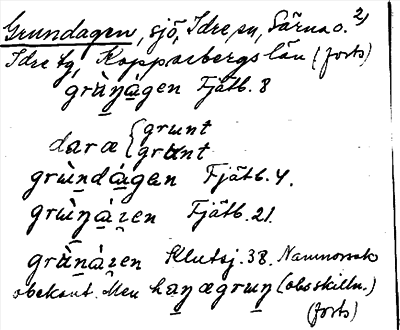 Grundagen, sjö, Idre sn, Särna o. 2)
Idre tg, Kopparbergs län (forts)
grùn̠á̠gen Fjätb. 8
daræ { grunt
grʉnt
grùn̠dá̠gen Fjätb. 4.
grùn̠á̠gen Fjätb. 21.
grùn̠á̠gen Klutsj. 38. Namnorsak
obekant. Men ha̠ŋægruŋ (obs skilln.)
(forts)